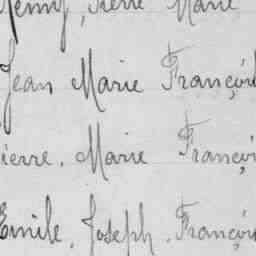 Pierre Marie
Jean Marie Françoi
ierre, Marie Françoi
Emile, Joseph, Françoi